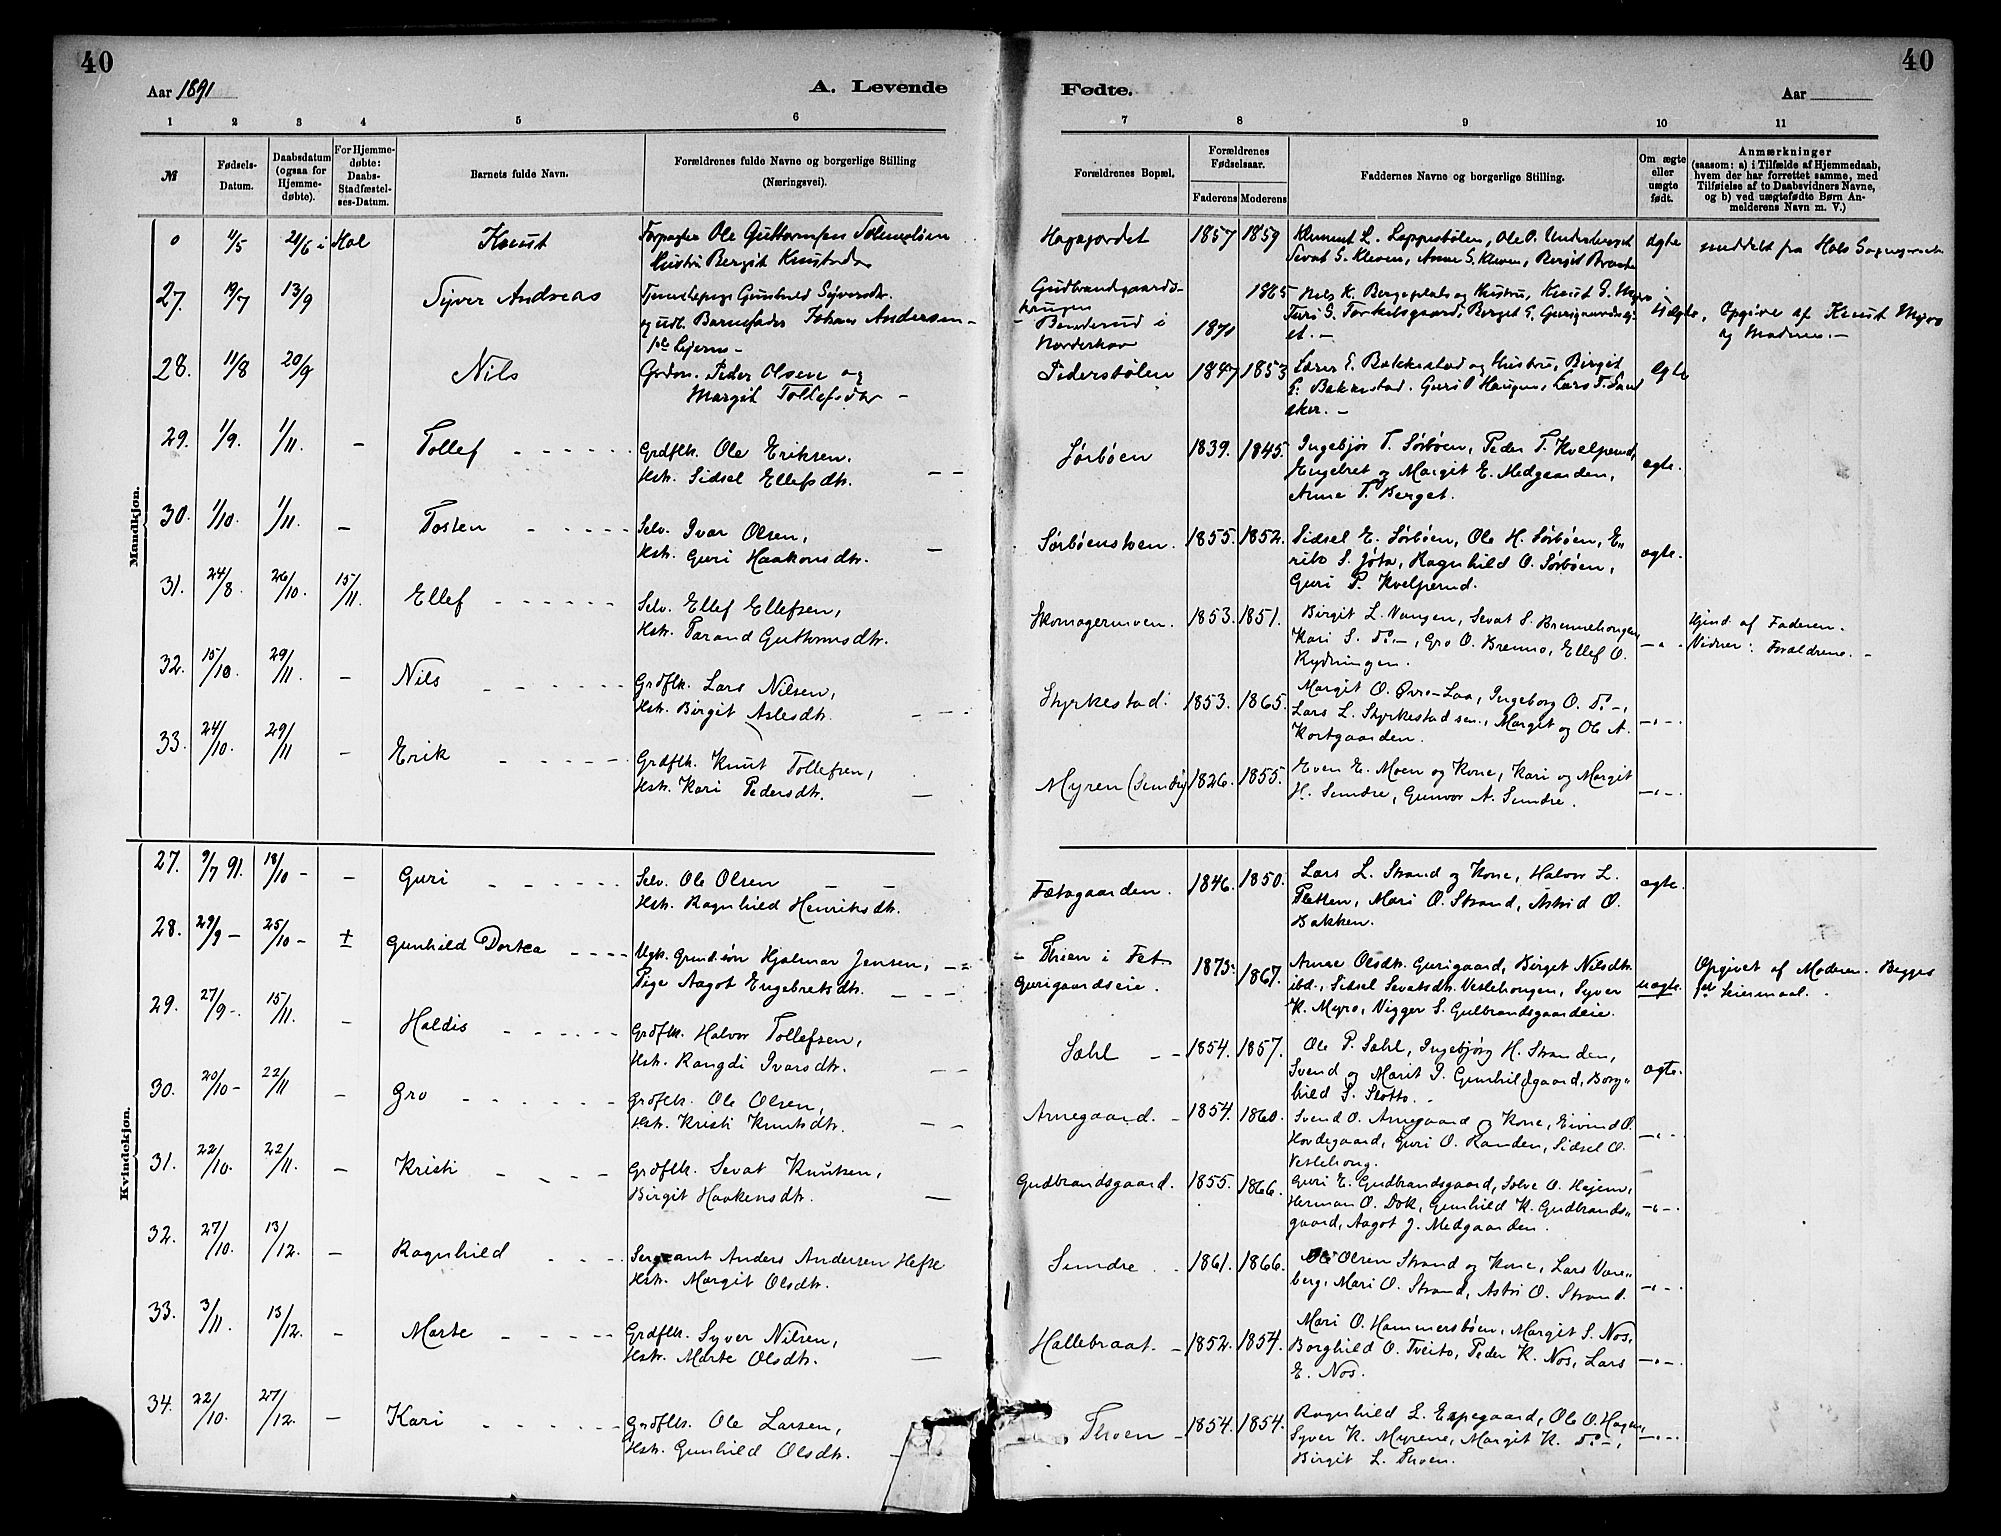 40
40
Aar 1891
A. Levende
Fødte.
Aar
1 2 3 4 5 6 7 8 9 10 11
№
Fødsels-
Datum.
Daabsdatum
(ogsaa for
Hjemme-
døbte).
For Hjemme-
døbte:
Daabs-
Stadfæstel-
ses-Datum.
Barnets fulde Navn.
Forældrenes fulde Navne og borgerlige Stilling
(Næringsvei).
Forældrenes Bopæl.
Forældrenes
Fødselsaar.
Faderens Moderens
Faddernes Navne og borgerlige Stilling.
Om ægte
eller
uægte
født.
Anmærkninger
(saasom: a) i Tilfælde af Hjemmedaab,
hvem der har forrettet samme, med
Tilføielse af to Daabsvidners Navne,
og b) ved uægtefødte Børn An-
melderens Navn m. V.)
Mandkjøn.
0 11/5 21/6 i Hol Knut
Ole Guttormsen
Hustru Bergit Knutsdtr
Hagajordet 1857 1859
ægte meddelt fra Hols
27. 19/7 13/9 Syver Andreas
Gunhild Syversdtr.
og udl. Barnefader Johan Andersen
Gudbrandgaards-
Benderud i
Norderhov
1871 1865
uægte, Opgive af Knut Myro
og Moderen. –
28. 11/8 20/9 Nils
Peder Olsen og
Margit Tollefsdtr –
Pederstølen 1847 1853
Lars E. Bakkestad og Hustru, Birgit
E. Bakkestad. Guri O Haugen, Lars T.
Egte
29. 1/9. 1/11. – Tollef
Grdflk. Ole Eriksen.
Hstr. Sidsel Ellefsdtr.
Sørbøen 1839. 1845.
Ingebjør T. Sørbøen, Peder T. Kvelprud,
Engebret og Margit E. Medgaarden,
Anne T. Berget.
ægte.
30. 1/10. 1/11. – Tosten
Selv. Ivar Olsen,
Hstr. Guri Haakonsdtr.
Sørbøenstøen. 1855. 1852.
Sidsel E. Sørbøen, Ole H. Sørbøen, E-
rik S. Jøta, Ragnhild O. Sørbøen,
Guri P. Kvelprud.
ægte.
31. 24/8. 26/10. 15/11. Ellef
Selv. Ellef Ellefsen,
Hstr. Tarand Guttormsdtr.
Skomagermoen. 1853. 1851.
Birgit L. Vangen, Sevat S. Brennehaugen
Kari S. do –, Gro O. Brenno, Ellef O.
Rydningen.
Hjmd. af Faderen.
Vidner: Forældrene. –
32. 15/10. 29/11. – Nils
Grdflk. Lars Nilsen,
Hstr. Birgit Aslesdtr.
Styrkestad. 1853. 1865.
Margit O. Øvre-Laa, Ingeborg O. do –,
Lars L. Styrkestad sen., Margit og Ole A.
Kortgaarden.
33. 24/10. 29/11 – Erik
Grdflk. Knut Tollefsen,
Hstr. Kari Pedersdtr.
Myren (Sundre) 1826. 1855.
Even E. Moen og Kone, Kari og Margit
H. Sundre, Gunvor A. Sundre.
Kvindekjøn.
27. 9/7 91. 18/10 – – Guri
Selv. Ole Olsen
Hstr. Ragnhild Henriksdtr.
Fætagaarden. 1846. 1850.
Lars L. Strand og Kone, Halvor L.
Sletten, Mari O. Strand, Astrid O.
Bakken.
ægte.
28. 29/9 – 25/10 – + Gunhild Dortea
Ugk. Grmd.søn Hjalmar Jensen,
Pige Aagot Engebretsdtr.
– Thien i Fet
Gurigaardseie. 1873. 1867.
Anne Olsdtr. Gurigaard, Birget Nilsdtr.
ibd., Sidsel Sevatsdtr. Veslehongen, Syver
K. Myro, Vigger S. Gulbrandsgaardeie.
uægte.
Opgivet af Moderen. Begges
1ste Leiermaal.
29. 27/9 –. 15/11. – Haldis
Grdflk. Halvor Tollefsen,
Hstr. Rangdi Ivarsdtr.
Sahl – – 1854. 1857.
Ole P. Sahl, Ingebjørg H. Stranden,
Svend og Marit I. Gunhildgaard, Borg-
hild S. Slotto. –
ægte.
30. 20/10 – 22/11 – Gro
Grdflk. Ole Olsen,
Hstr. Kristi Knutsdtr.
Arnegaard. – 1854. 1860.
Svend O. Arnegaard og Kone, Eivind O.
Hovdegaard, Guri O. Randen, Sidsel O.
Veslehong.
31. 22/10. 22/11. – Kristi
Grdflk. Sevat Knutsen,
Birgit Haakensdtr.
Gudbrandsgaard. 1855. 1866.
Guri E. Gudbrandsgaard, Solve O. Hajem,
Herman O. Dok, Gunhild K. Gudbrands-
gaard, Aagot J. Medgaarden.
32. 27/10. 13/12. – Ragnhild
Sergeant Anders Andersen Hefte
Hstr. Margit Olsdtr.
Sundre – 1861. 1866.
Ole Olsen Strand og Kone, Lars Vare-
berg, Mari O. Strand, Astri O. Strand.
33. 3/11. 13/12. – Marte
Grdflk. Syver Nilsen,
Hstr. Marte Olsdtr.
Hallebraat. – 1852. 1854.
Mari O. Hammersbøen, Margit S. Nos,
Borghild O. Tveito, Peder K. Nos, Lars
E. Nos.
34. 22/10. 27/12. – Kari
Grdflk. Ole Larsen,
Hstr. Gunhild Olsdtr.
Thoen – 1854. 1854.
Ragnhild L. Espegaard, Ole O. Hagen,
Syver K. Myrene, Margit K. do –,
Birgit L. Thoen.